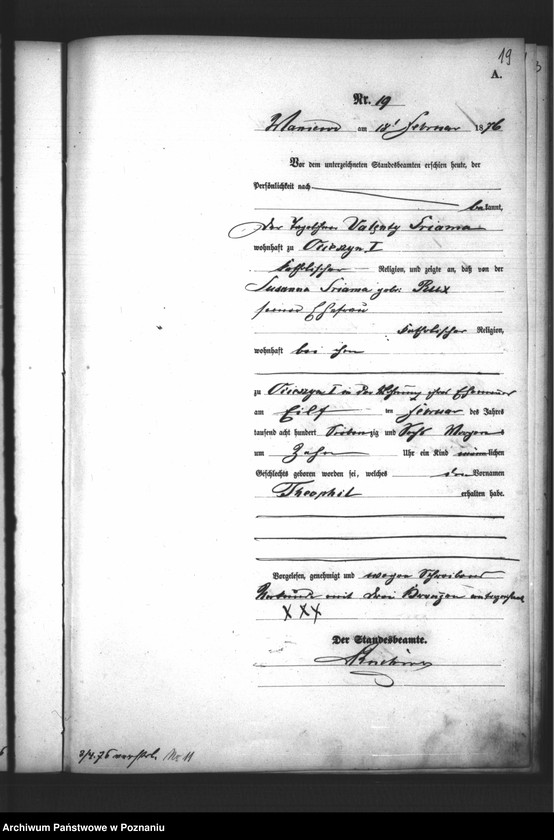 19
A.
Nr. 19
am 18t Februar 1876
Vor dem unterzeichneten Standesbeamten erschien heute, der
Persönlichkeit nach
bekannt,
der Tagelöhner Valenty Sriama
wohnhaft zu I
katholischer Religion, und zeigte an, daß von der
Susanna Sriama geb: Rux
seiner Ehefrau
katholischer Religion,
wohnhaft bei ihm
zu I in der Wohnung ihres Ehemannes
am Eilf ten Februar des Jahres
tausend acht hundert Siebenzig und Sechs Morgens
um Zehn Uhr ein Kind männlichen
Geschlechts geboren worden sei, welches den Vornamen
Theophil erhalten habe.
Vorgelesen, genehmigt und wegen Schreibens
mit drei Kreuzen
XXX
Der Standesbeamte.
3/4.76 No 11
Archiwum Państwowe w Poznaniu